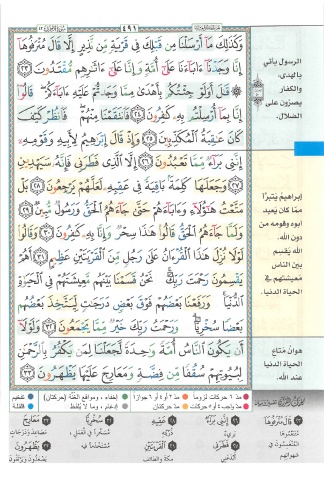 ٤٩١
وَكَذَٰلِكَ مَآ أَرْسَلْنَا مِن قَبْلِكَ فِي قَرْيَةٍ مِّن نَّذِيرٍ إِلَّا قَالَ مُتْرَفُوهَآ
إِنَّا وَجَدْنَآ ءَابَآءَنَا عَلَىٰٓ أُمَّةٍ وَإِنَّا عَلَىٰٓ ءَاثَٰرِهِم مُّقْتَدُونَ ٢٣
۞ قَٰلَ أَوَلَوْ جِئْتُكُم بِأَهْدَىٰ مِمَّا وَجَدتُّمْ عَلَيْهِ ءَابَآءَكُمْ ۖ قَالُوٓا۟
إِنَّا بِمَآ أُرْسِلْتُم بِهِۦ كَٰفِرُونَ ٢٤ فَٱنتَقَمْنَا مِنْهُمْ ۖ فَٱنظُرْ كَيْفَ
كَانَ عَٰقِبَةُ ٱلْمُكَذِّبِينَ ٢٥ وَإِذْ قَالَ إِبْرَٰهِيمُ لِأَبِيهِ وَقَوْمِهِۦٓ
إِنَّنِى بَرَآءٌ مِّمَّا تَعْبُدُونَ ٢٦ إِلَّا ٱلَّذِى فَطَرَنِى فَإِنَّهُۥ سَيَهْدِينِ
٢٧ وَجَعَلَهَا كَلِمَةًۢ بَاقِيَةً فِى عَقِبِهِۦ لَعَلَّهُمْ يَرْجِعُونَ ٢٨ بَلْ
مَتَّعْتُ هَٰٓؤُلَآءِ وَءَابَآءَهُمْ حَتَّىٰ جَآءَهُمُ ٱلْحَقُّ وَرَسُولٌ مُّبِينٌ ٢٩
وَلَمَّا جَآءَهُمُ ٱلْحَقُّ قَالُوا۟ هَٰذَا سِحْرٌ وَإِنَّا بِهِۦ كَٰفِرُونَ ٣٠ وَقَالُوا۟
لَوْلَا نُزِّلَ هَٰذَا ٱلْقُرْءَانُ عَلَىٰ رَجُلٍ مِّنَ ٱلْقَرْيَتَيْنِ عَظِيمٍ ٣١ أَهُمْ
يَقْسِمُونَ رَحْمَتَ رَبِّكَ ۚ نَحْنُ قَسَمْنَا بَيْنَهُم مَّعِيشَتَهُمْ فِى ٱلْحَيَوٰةِ
ٱلدُّنْيَا ۚ وَرَفَعْنَا بَعْضَهُمْ فَوْقَ بَعْضٍ دَرَجَٰتٍ لِّيَتَّخِذَ بَعْضُهُم
بَعْضًا سُخْرِيًّا ۗ وَرَحْمَتُ رَبِّكَ خَيْرٌ مِّمَّا يَجْمَعُونَ ٣٢ وَلَوْلَآ
أَن يَكُونَ ٱلنَّاسُ أُمَّةً وَٰحِدَةً لَّجَعَلْنَا لِمَن يَكْفُرُ بِٱلرَّحْمَٰنِ
لِبُيُوتِهِمْ سُقُفًا مِّن فِضَّةٍ وَمَعَارِجَ عَلَيْهَا يَظْهَرُونَ ٣٣
الرسول يأتي
بالهدى،
والكفار
يصرّون على
الضلال.
إبراهيم يَتبرّأ
ممّا كان يعبد
أبوه وقومه من
دون الله.
الله يَقسم
بين الناس
مَعيشتهم في
الحياة الدنيا.
هوان مَتاع
الحياة الدنيا
عند الله.
مُتْرَفُوهَا
مُتنعّموها
بَرَاءٌ
بَرِيءٌ
فَطَرَنِي
عَقِبِهِ
ذُرّيّتِه
الْقَرْيَتَيْنِ
مكة والطائف
سُخْرِيًّا
مَعَارِجَ
يَظْهَرُونَ